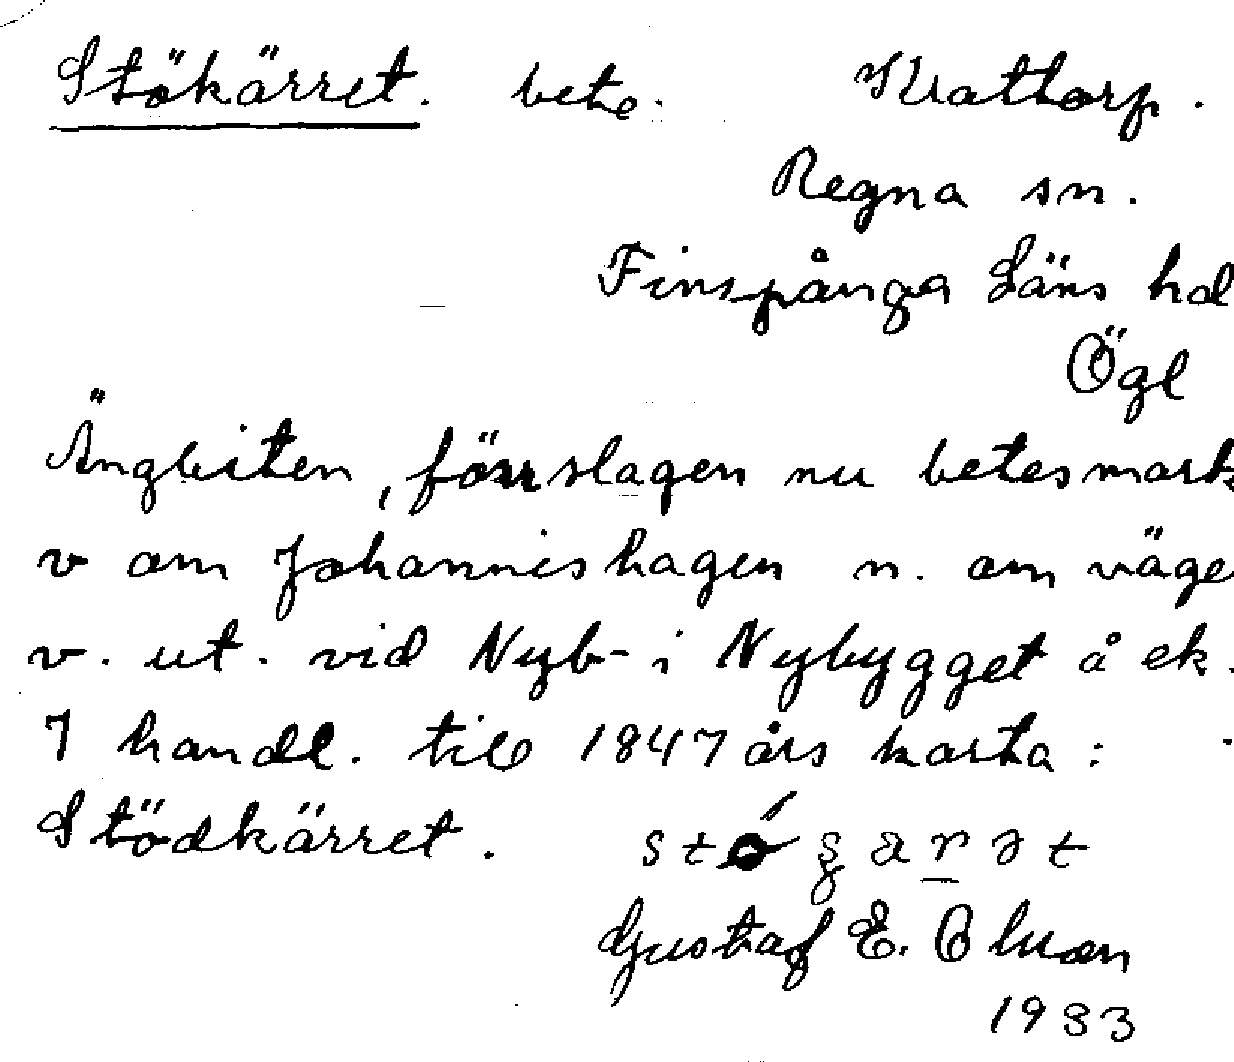 Stökärret. bete. Kvattorp.
Regna sn.
Finspånga Läns hd
Ögl
Ängbiten, förr slagen nu betesmark
v om Johannishagen n. om väge
v. ut. vid Nyb- i Nybygget å ek.
I handl. till 1847 års karta:
Stödkärret.
Gustaf E. Olson
1933